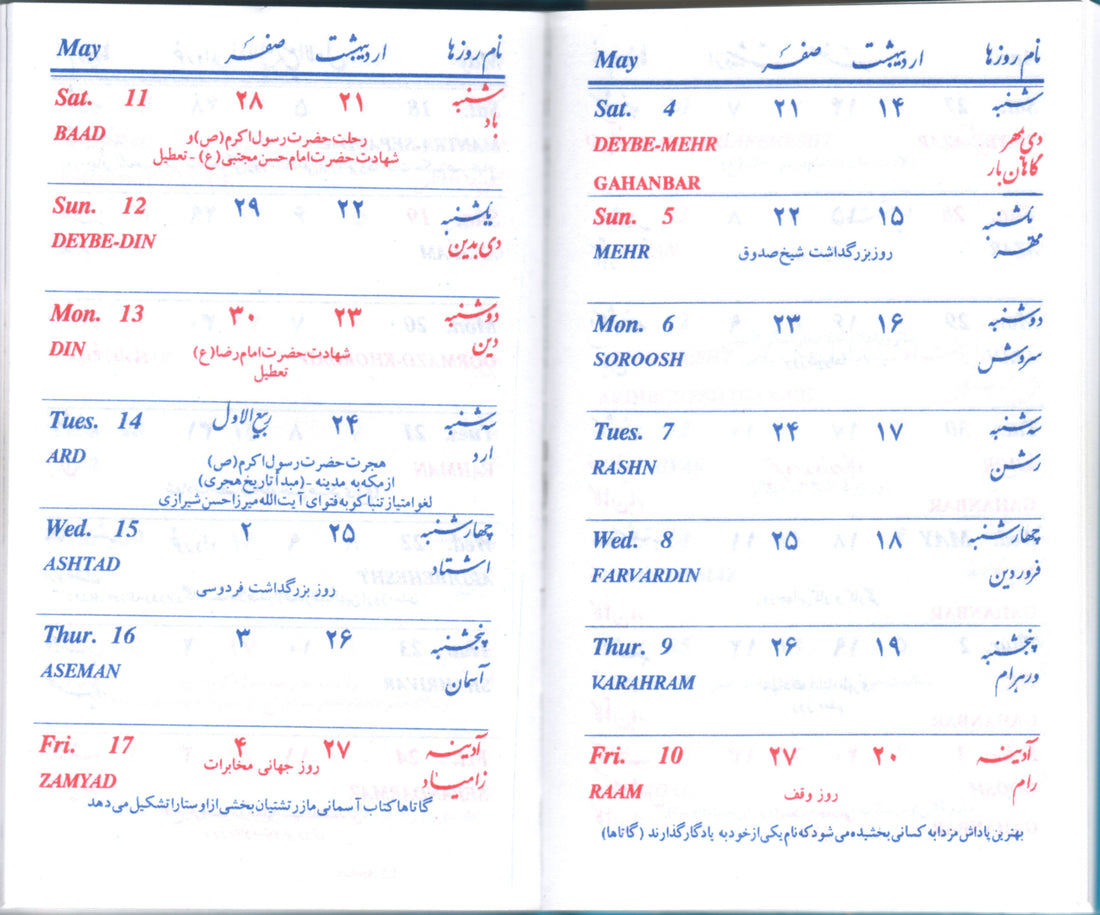 نام روزها اردیبهشت صفر May
شنبه ۱۴ ۲۱ Sat. 4
دی بمهر DEYBE-MEHR
گاهان بار GAHANBAR
یکشنبه ۱۵ ۲۲ Sun. 5
مهر روز بزرگداشت شیخ صدوق MEHR
دوشنبه ۱۶ ۲۳ Mon. 6
سروش SOROOSH
سه شنبه ۱۷ ۲۴ Tues. 7
رشن RASHN
چهارشنبه ۱۸ ۲۵ Wed. 8
فروردین FARVARDIN
پنجشنبه ۱۹ ۲۶ Thur. 9
ورهرام VARAHRAM
آدینه ۲۰ ۲۷ Fri. 10
رام روز وقف RAAM
بهترین پاداش مزدا به کسانی بخشیده می شود که نام یکی از خود به یادگار گذارند (گاتاها)
نام روزها اردیبهشت صفر May
شنبه ۲۱ ۲۸ Sat. 11
باد رحلت حضرت رسول اکرم (ص) و BAAD
شهادت حضرت امام حسن مجتبی (ع) - تعطیل
یکشنبه ۲۲ ۲۹ Sun. 12
دی بدین DEYBE-DIN
دوشنبه ۲۳ ۳۰ Mon. 13
دین شهادت حضرت امام رضا (ع) DIN
تعطیل
سه شنبه ۲۴ ربیع الاول Tues. 14
ارد هجرت حضرت رسول اکرم (ص) ARD
از مکه به مدینه - (مبدأ تاریخ هجری)
لغو امتیاز تنباکو به فتوای آیت الله میرزا حسن شیرازی
چهارشنبه ۲۵ ۲ Wed. 15
اشتاد ASHTAD
روز بزرگداشت فردوسی
پنجشنبه ۲۶ ۳ Thur. 16
آسمان ASEMAN
آدینه ۲۷ ۴ Fri. 17
زامیاد روز جهانی مخابرات ZAMYAD
گاتاها کتاب آسمانی ما زرتشتیان بخشی از اوستا را تشکیل می دهد